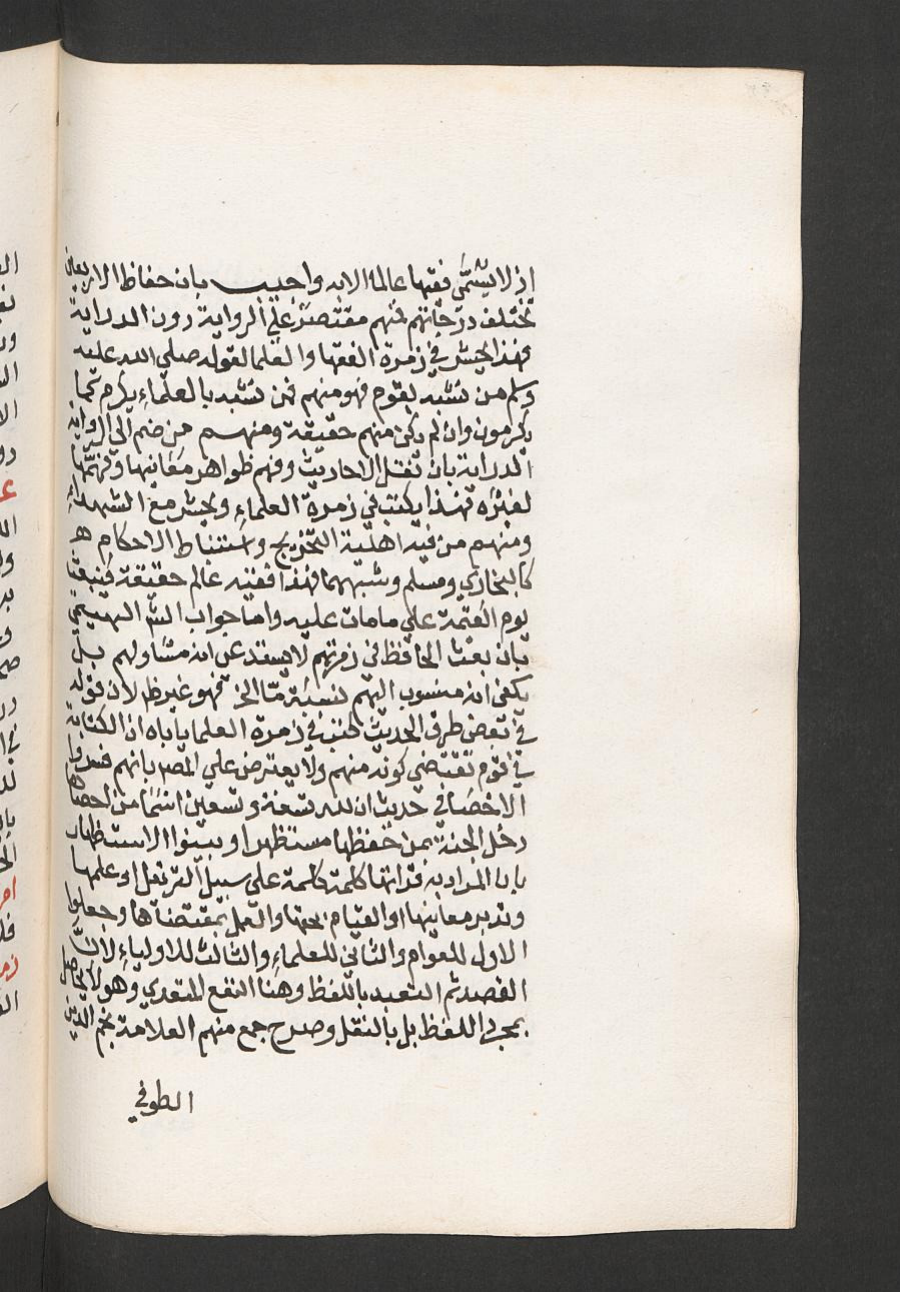 اذ لا يسَمَّى فقيها عالما الا به واجيب بان حفاظ الاربعين
تختلف درجاتهم فمنهم مقتصرٌ علي الرواية دون الدراية
فهذا يحشر في زمرة الفقها والعلما لقوله صلي الله عليه
وسلم من تشبه بقوم فهو منهم فمن تشبه بالعلماء يكرم كما
يكرمون وان لم يكن منهم حقيقة ومنهم من ضم الي الرواية
الدراية بان نقل الاحاديث وفهم ظواهر معانيها وفهمها
لغيره فهذا يكتب في زمرة العلماء ويحشر مع الشهداء
ومنهم من فيه اهلية التخريج واستنباط الاحكام
كالبخاري ومسلم وشبههما فهذا فقيه عالم حقيقة فيبعث
يوم القيمة علي مامات عليه واما جواب الشه الهيتمي
بان بعث الحافظ في زمرتهم لا يستدعي انه مساو لهم بل
يكفي انه منسوب اليهم لنسبة مّا الخ فهو غير ظ لان قوله
في بعض طرق الحديث كتب في زمرة العلما ياباه اذ الكتابة
في قوم تقتضي كونه منهم ولا يعترض علي المص بانهم فسروا
الاحصا في حديث ان لله تسعة وتسعين اسمًا من احصاها
دخل الجنة بمن حفظها مستظهرا وبينوا الاستظهار
بان المراد به قراتها كلمة كلمة علي سبيل الترتيل او علمها
وتدبر معاينها او القيام بحقها والعمل بمقتضاها وجعلوا
الاول للعوام والثاني للعلماء والثالث للاولياء لانَّ
القصد ثم التعبد باللفظ وهنا النفع المتعدي وهو لا يحصل
بمجرد اللفظ بل بالنقل وصرح جمع منهم العلامة نجم الدين
الطوفي